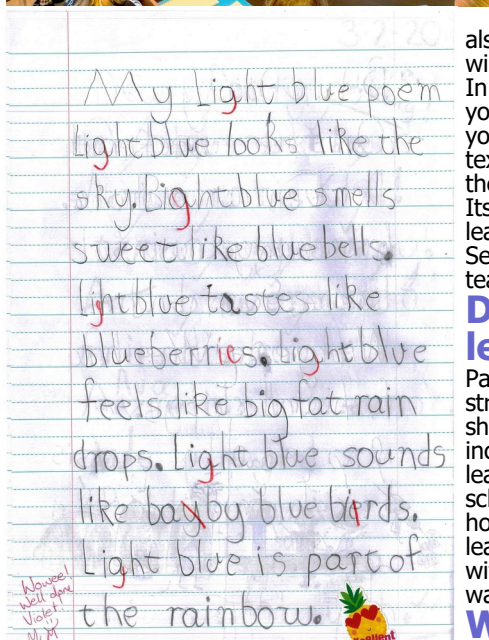 3-2-20
My Light blue poem
Light blue looks like the
sky. Light blue smells
sweet like bluebells.
Light blue tastes like
blueberries. Light blue
feels like big fat rain
drops. Light blue sounds
like bayby blue bierds.
Light blue is part of
the rainbow.
Wowee!
Well done
Violet!
Excellent
als
wi
In
yo
yo
tex
the
Its
lea
Se
tea
D
le
Pa
str
sh
inc
lea
scl
ho
lea
wi
wa
W